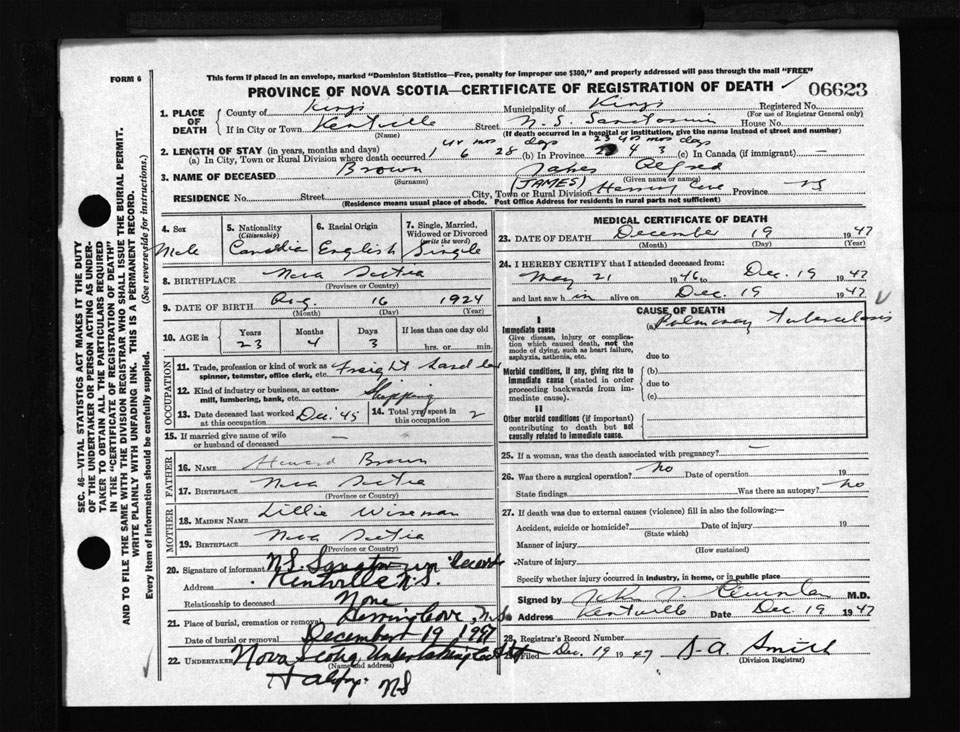 FORM 6
This form if placed in an envelope, marked "Dominion Statistics—Free, penalty for improper use $300," and properly addressed will pass through the mail "FREE"
PROVINCE OF NOVA SCOTIA—CERTIFICATE OF REGISTRATION OF DEATH
06623
1. PLACE OF DEATH
County of Kings Municipality of Kings Registered No.
(For use of Registrar General only)
If in City or Town Kentville Street N.S. Sanatorium House No.
(Name) (If death occurred in a hospital or institution, give the name instead of street and number)
2. LENGTH OF STAY (in years, months and days) yr mos days 23 yrs mos days
(a) In City, Town or Rural Division where death occurred 1 6 28 (b) In Province 4 3 (c) In Canada (if immigrant) —
3. NAME OF DECEASED Brown James Alfred
(Surname) (JAMES) (Given name or names)
RESIDENCE No. Street City, Town or Rural Division Herring Cove Province NS
(Residence means usual place of abode. Post Office Address for residents in rural parts not sufficient)
SEC. 46—VITAL STATISTICS ACT MAKES IT THE DUTY
OF THE UNDERTAKER OR PERSON ACTING AS UNDER-
TAKER TO OBTAIN ALL THE PARTICULARS REQUIRED
IN THE "CERTIFICATE OF REGISTRATION OF DEATH"
AND TO FILE THE SAME WITH THE DIVISION REGISTRAR WHO SHALL ISSUE THE BURIAL PERMIT.
WRITE PLAINLY WITH UNFADING INK. THIS IS A PERMANENT RECORD.
Every item of information should be carefully supplied. (See reverse side for instructions.)
4. Sex Male
5. Nationality (Citizenship) Canadian
6. Racial Origin English
7. Single, Married, Widowed or Divorced (write the word) Single
8. BIRTHPLACE Nova Scotia
(Province or Country)
9. DATE OF BIRTH Aug. 16 1924
(Month) (Day) (Year)
10. AGE in Years Months Days If less than one day old
23 4 3 hrs. or min.
OCCUPATION
11. Trade, profession or kind of work as spinner, teamster, office clerk, etc. Freight handler
12. Kind of industry or business, as cotton-mill, lumbering, bank, etc. Shipping
13. Date deceased last worked at this occupation Dec. '45
14. Total yrs. spent in this occupation 2
15. If married give name of wife or husband of deceased —
FATHER
16. NAME Howard Brown
17. BIRTHPLACE Nova Scotia
(Province or Country)
MOTHER
18. MAIDEN NAME Lillie Wiseman
19. BIRTHPLACE Nova Scotia
(Province or Country)
20. Signature of informant N.S. Sanatorium Records
Address Kentville N.S.
Relationship to deceased None
21. Place of burial, cremation or removal Herring Cove, N.S.
Date of burial or removal December 19 1947
22. UNDERTAKER Nova Scotia Undertaking Co
(Name and address)
Halifax NS
MEDICAL CERTIFICATE OF DEATH
23. DATE OF DEATH December 19 1947
(Month) (Day) (Year)
24. I HEREBY CERTIFY that I attended deceased from:
May 21 1946 to Dec. 19 1947
and last saw him alive on Dec. 19 1947
CAUSE OF DEATH
I
Immediate cause (a) Pulmonary Tuberculosis
Give disease, injury or complication which caused death, not the mode of dying, such as heart failure, asphyxia, asthenia, etc.
due to
Morbid conditions, if any, giving rise to immediate cause (stated in order proceeding backwards from immediate cause).
(b)
due to
(c)
II
Other morbid conditions (if important) contributing to death but not causally related to immediate cause.
25. If a woman, was the death associated with pregnancy? —
26. Was there a surgical operation? No Date of operation 19
State findings Was there an autopsy? No
27. If death was due to external causes (violence) fill in also the following:—
Accident, suicide or homicide? Date of injury 19
(State which)
Manner of injury
(How sustained)
Nature of injury
Specify whether injury occurred in industry, in home, or in public place
Signed by M.D.
Address Kentville Date Dec. 19 1947
28. Registrar's Record Number
Filed Dec. 19 1947 S-A. Smith
(Division Registrar)